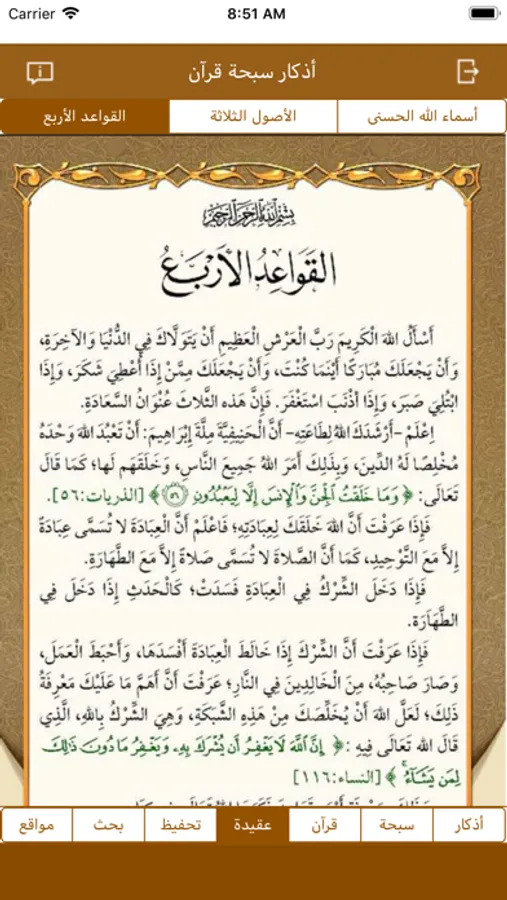 Carrier 8:51 AM
أذكار سبحة قرآن
أسماء الله الحسنى الأصول الثلاثة القواعد الأربع
بِسْمِ اللَّهِ الرَّحْمَٰنِ الرَّحِيمِ
القَوَاعِدُ الأَرْبَعُ
أَسْأَلُ اللهَ الْكَرِيمَ رَبَّ الْعَرْشِ الْعَظِيمِ أَنْ يَتَوَلَّاكَ فِي الدُّنْيَا وَالآخِرَةِ،
وَأَنْ يَجْعَلَكَ مُبَارَكًا أَيْنَمَا كُنْتَ، وَأَنْ يَجْعَلَكَ مِمَّنْ إِذَا أُعْطِيَ شَكَرَ، وَإِذَا
ابْتُلِيَ صَبَرَ، وَإِذَا أَذْنَبَ اسْتَغْفَرَ. فَإِنَّ هَذِهِ الثَّلاثَ عُنْوَانُ السَّعَادَةِ.
اِعْلَمْ –أَرْشَدَكَ اللهُ لِطَاعَتِهِ– أَنَّ الْحَنِيفِيَّةَ مِلَّةَ إِبْرَاهِيمَ: أَنْ تَعْبُدَ اللهَ وَحْدَهُ
مُخْلِصًا لَهُ الدِّينَ، وَبِذَلِكَ أَمَرَ اللهُ جَمِيعَ النَّاسِ، وَخَلَقَهُم لَها؛ كَمَا قَالَ
تَعَالَى: ﴿ وَمَا خَلَقْتُ ٱلْجِنَّ وَٱلْإِنسَ إِلَّا لِيَعْبُدُونِ ٥٦ ﴾ [الذريات:٥٦].
فَإِذَا عَرَفْتَ أَنَّ اللهَ خَلَقَكَ لِعِبَادَتِهِ؛ فَاعْلَمْ أَنَّ الْعِبَادَةَ لا تُسَمَّى عِبَادَةً
إِلاَّ مَعَ التَّوْحِيدِ، كَمَا أَنَّ الصَّلاةَ لا تُسَمَّى صَلاةً إِلاَّ مَعَ الطَّهَارَةِ.
فَإِذَا دَخَلَ الشِّرْكُ فِي الْعِبَادَةِ فَسَدَتْ؛ كَالْحَدَثِ إِذَا دَخَلَ فِي
الطَّهَارَةِ.
فَإِذَا عَرَفْتَ أَنَّ الشِّرْكَ إِذَا خَالَطَ الْعِبَادَةَ أَفْسَدَهَا، وَأَحْبَطَ الْعَمَلَ،
وَصَارَ صَاحِبُهُ، مِنَ الْخَالِدِينَ فِي النَّارِ؛ عَرَفْتَ أَنَّ أَهَمَّ مَا عَلَيْكَ مَعْرِفَةُ
ذَلِكَ؛ لَعَلَّ اللهَ أَنْ يُخَلِّصَكَ مِنْ هَذِهِ الشَّبَكَةِ، وَهِيَ الشِّرْكُ بِاللهِ، الَّذِي
قَالَ الله تَعَالَى فِيهِ :﴿ إِنَّ ٱللَّهَ لَا يَغْفِرُ أَن يُشْرَكَ بِهِۦ وَيَغْفِرُ مَا دُونَ ذَٰلِكَ
لِمَن يَشَآءُ ﴾ [النساء:١١٦]
أذكار سبحة قرآن عقيدة تحفيظ بحث مواقع